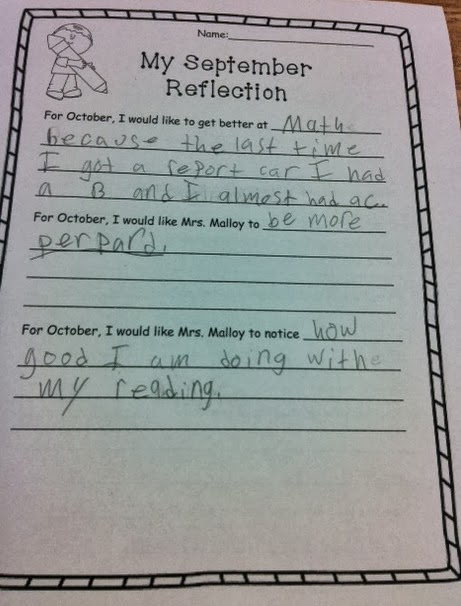 Name:
My September
Reflection
For October, I would like to get better at Math
because the last time
I got a report car I had
a B and I almost had a c..
For October, I would like Mrs. Malloy to be more
perpard.
For October, I would like Mrs. Malloy to notice how
good I am doing withe
my reading.